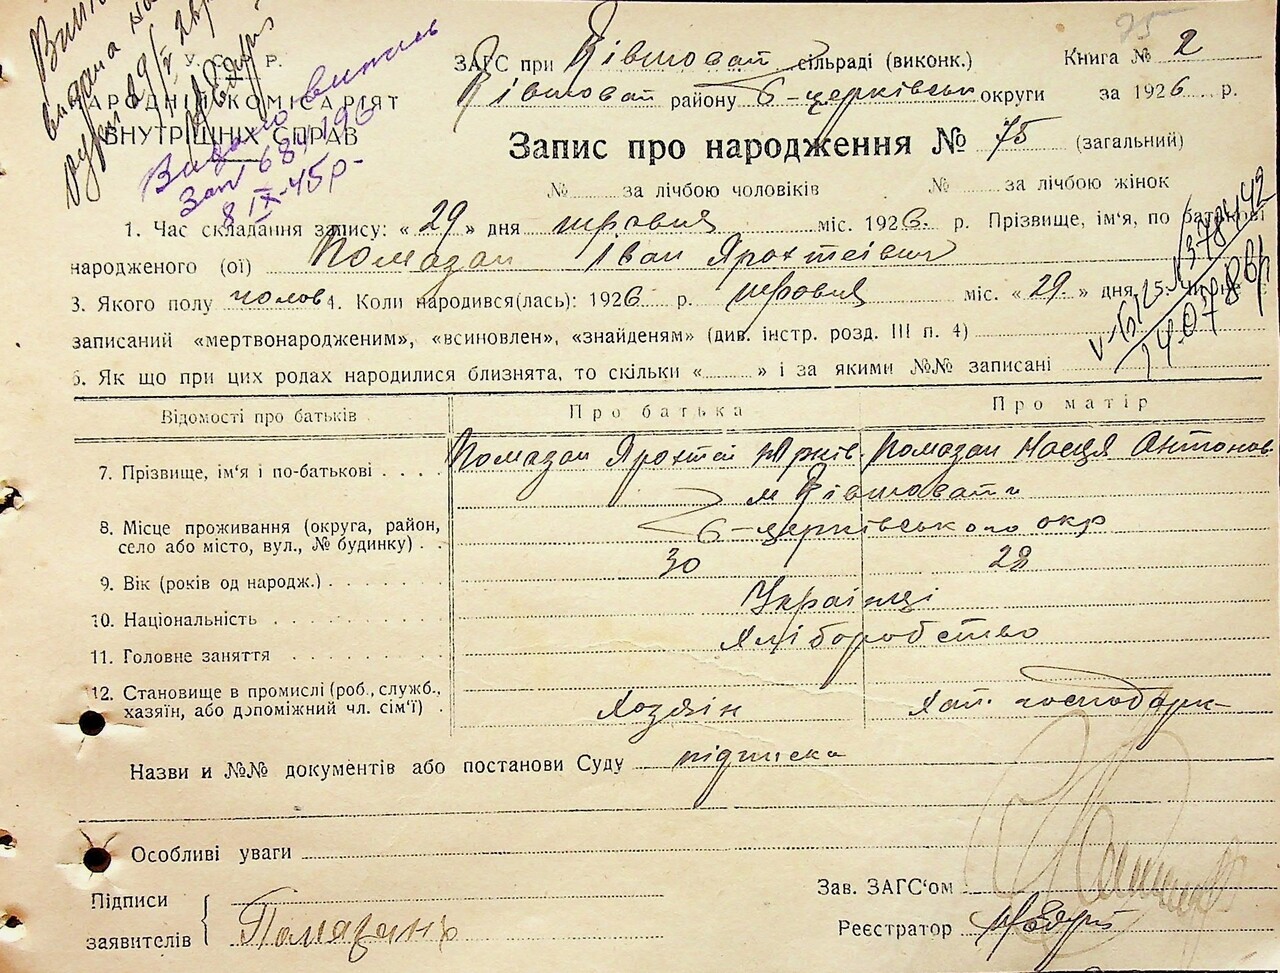 75
У. С. Р. Р.
НАРОДНІЙ КОМІСАРІЯТ
ВНУТРІШНІХ СПРАВ
Видано
8/ІХ-45р-
ЗАГС при Ківшоват сільраді (виконк.) Книга № 2
Ківшоват району Б-церківськ округи за 1926 р.
Запис про народження № 75 (загальний)
№ за лічбою чоловіків № за лічбою жінок
1. Час складання запису: « 29 » дня травня міс. 1926 р. Прізвище, ім'я, по батькові
народженого (ої) Помазан Іван Ярохтеівич
3. Якого полу чолов 4. Коли народився(лась): 1926 р. травня міс. « 29 » дня 5. Чи не
записаний «мертвонародженим», «всиновлен», «знайденям» (див. інстр. розд. III п. 4)
6. Як що при цих родах народилися близнята, то скільки « » і за якими №№ записані
Відомості про батьків Про батька Про матір
7. Прізвище, ім'я і по-батькові Помазан Ярохтей Помазан Настя Антонов
м Ківшовати
8. Місце проживання (округа, район, село або місто, вул., № будинку) Б-церківського окр
9. Вік (років од народж.) 30 28
10. Національність Українці
11. Головне заняття Хліборобство
12. Становище в промислі (роб., служб., хазяїн, або допоміжний чл. сім'ї) Хозяін Хат. господарк
Назви и №№ документів або постанови Суду підписка
Особливі уваги
Підписи
заявителів
Зав. ЗАГС'ом
Реєстратор